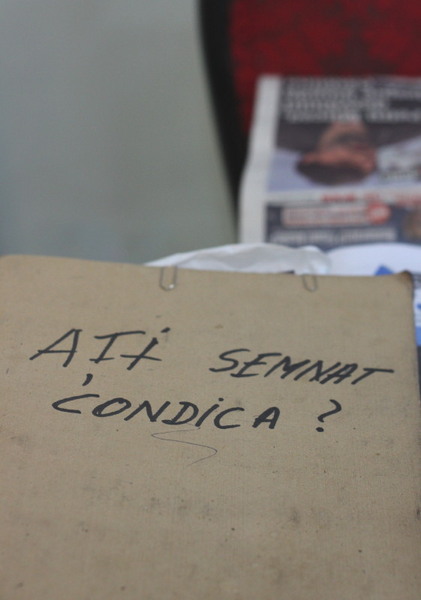 AȚI SEMNAT
CONDICA ?